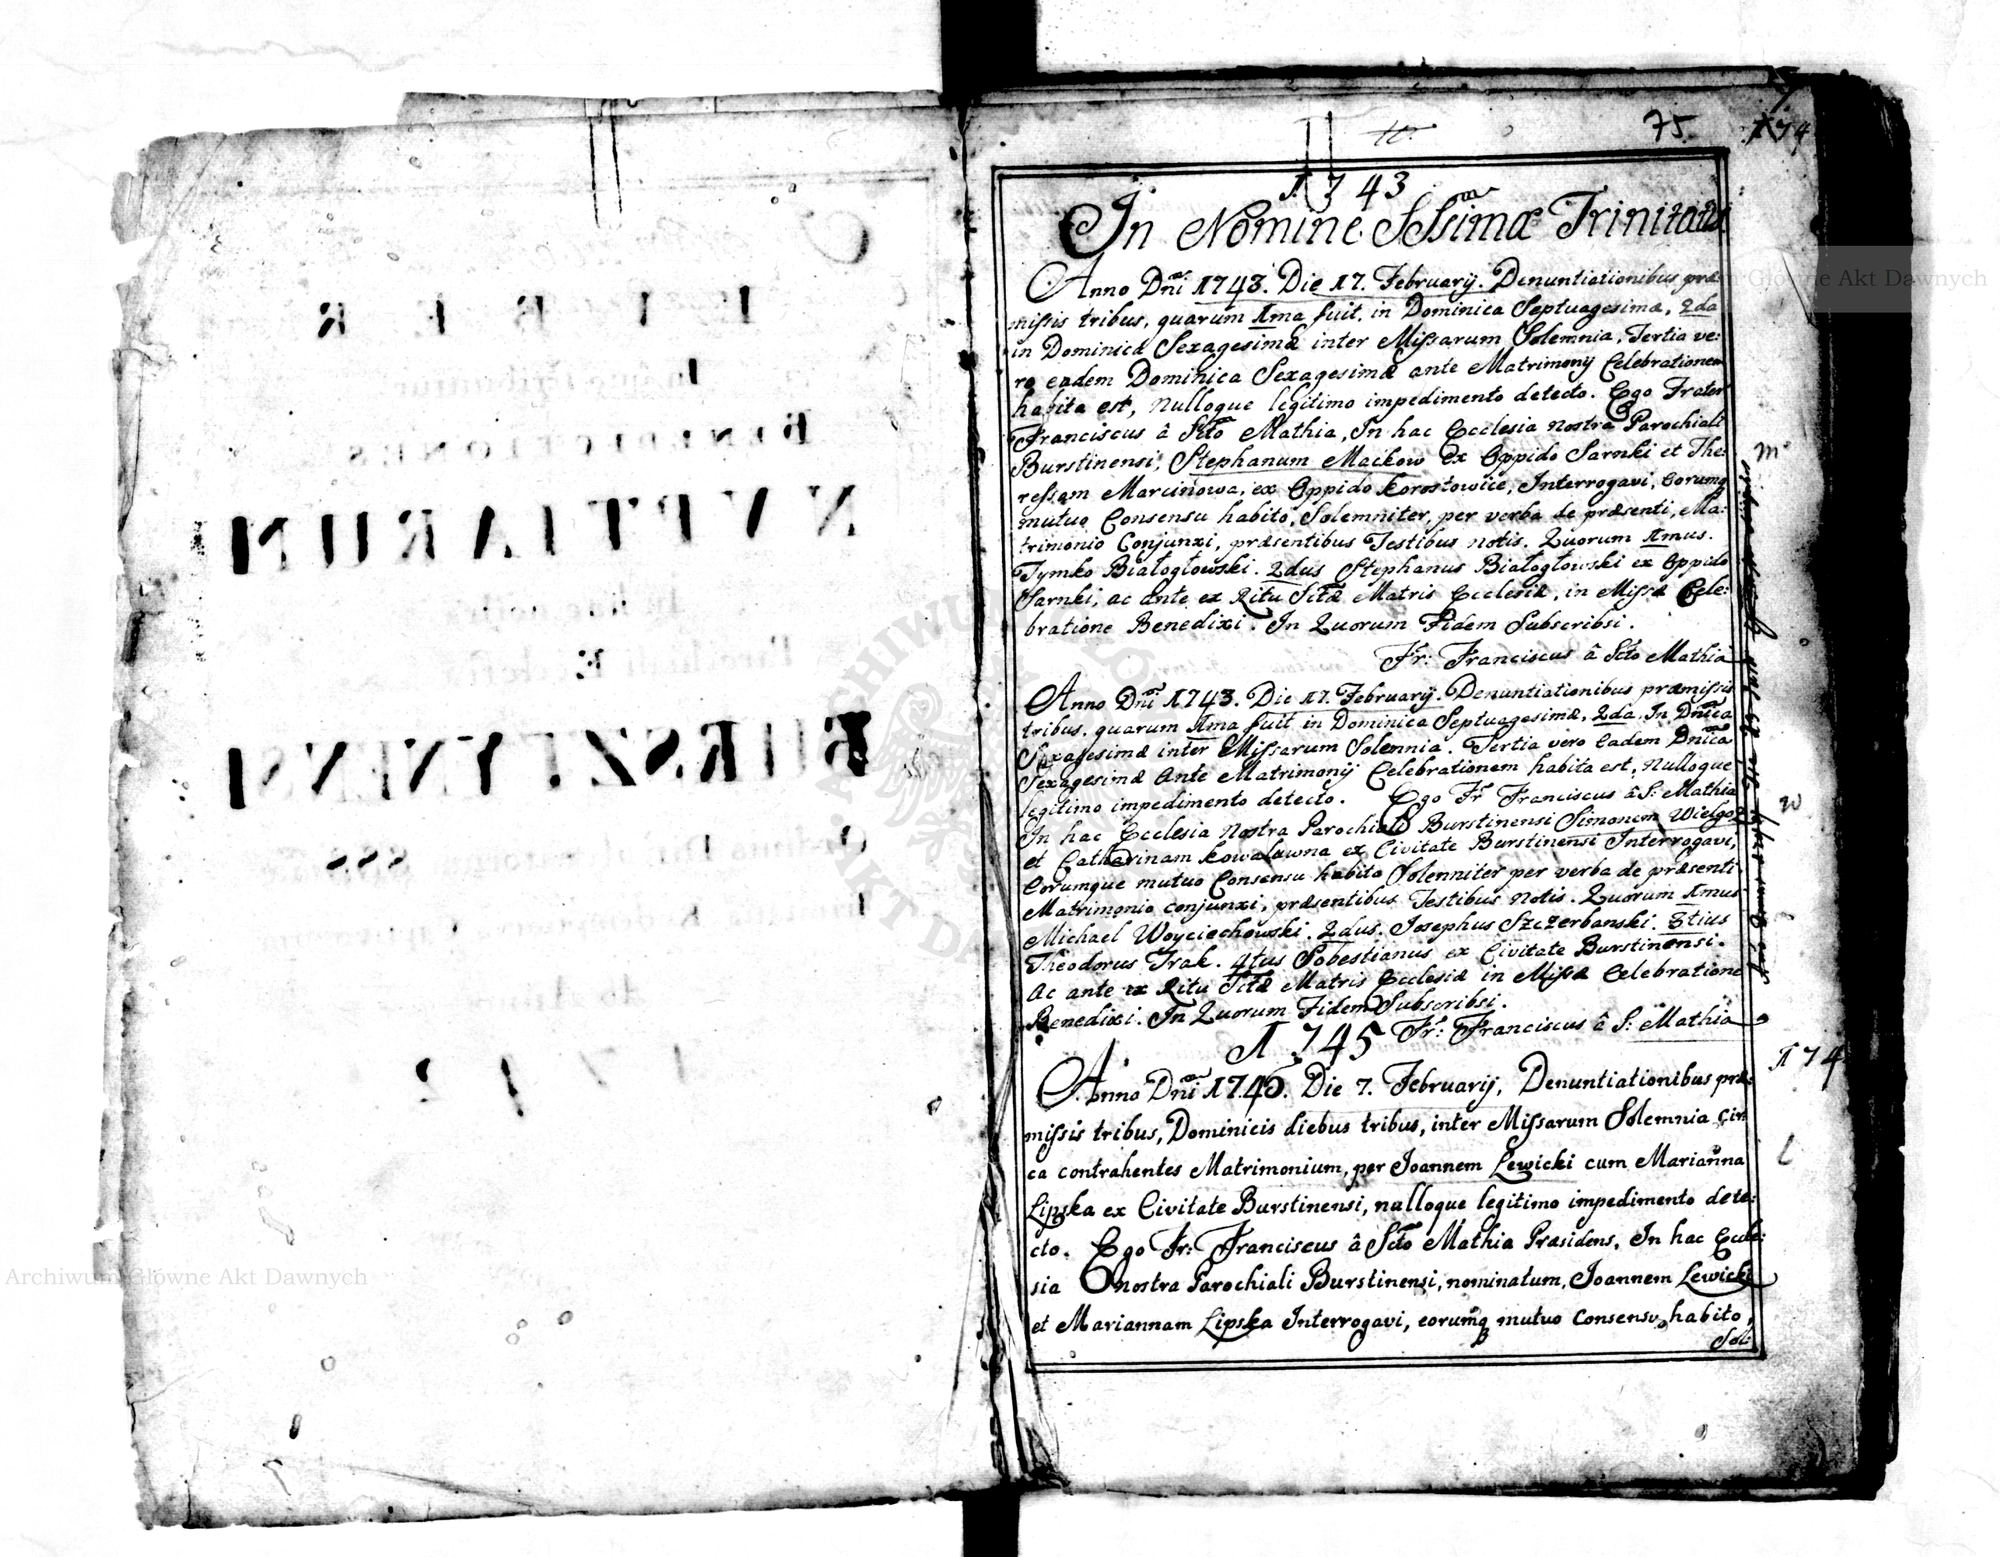 LIBER
I
BENEDICTIONES
NVPTIARUM
In hac nostra
E
Parochiali Ecclesia
BURSZTYNENSI
1742
75.
174
1743
In Nomine SSsimæ Trinitatis
Anno Dnī 1743. Die 17. Februarij. Denuntiationibus præ-
missis tribus, quarum 1ma fuit, in Dominica Septuagesimæ, 2da
in Dominica Sexagesimæ inter Missarum Solemnia, Tertia ve:
ro eadem Dominica Sexagesimæ ante Matrimonij Celebrationem
habita est, Nulloque legitimo impedimento detecto. Ego Frater
Franciscus â Scto Mathia, In hac Ecclesia nostra Parochiali
Burstinensi, Stephanum Maćkow ex Oppido Sarnki et The:
ressam Marcinowa, ex Oppido Korostowiće, Interrogavi, Eorumq
mutuo Consensu habito, Solemniter, per verba de præsenti, Ma:
trimonio Conjunxi, præsentibus Testibus notis. Quorum 1mus.
Tymko Białogłowski. 2dus Stephanus Białogłowski ex Oppido
Sarnki, ac ante ex Ritu Sctæ Matris Ecclesiæ, in Missæ Cele:
bratione Benedixi. In Quorum Fidem Subscribsi.
Fr: Franciscus â Scto Mathia
Anno Dnī 1743. Die 17. Februarij. Denuntiationibus præmissis
tribus, quarum 1ma fuit in Dominica Septuagesimæ, 2da In Dnīca
Sexagesimæ inter Missarum Solennia. Tertia vero Eadem Dnīca
Sexagesimæ Ante Matrimonij Celebrationem habita est, Nulloque
legitimo impedimento detecto. Ego Fr Franciscus â S: Mathia
In hac Ecclesia Nostra Parochiali Burstinensi Simonem Wielgoz
et Catharinam Kowalawna ex Civitate Burstinensi Interrogavi,
Eorumque mutuo Consensu habito Solenniter per verba de præsenti
Matrimonio conjunxi, præsentibus Testibus Notis. Quorum 1mus
Michael Woyciechowski. 2dus. Josephus Szczerbanski. 3tius
Theodorus Trak. 4tus Sobestianus ex Civitate Burstinensi.
Ac ante ex Ritu Sctæ Matris Ecclesiæ in Missæ Celebratione
Benedixi. In Quorum Fidem Subscribsi.
Fr: Franciscus â S: Mathia
1745
Anno Dnī 1745. Die 7. Februarij, Denuntiationibus præ:
missis tribus, Dominicis diebus tribus, inter Missarum Solemnia cir
ca contrahentes Matrimonium, per Joannem Lewicki cum Marianna
Lipska ex Civitate Burstinensi, nulloque legitimo impedimento dete:
cto. Ego Fr: Franciscus â Scto Mathia Præsidens, In hac Eccle:
sia nostra Parochiali Burstinensi, nominatum, Joannem Lewicki
et Mariannam Lipska Interrogavi, eorumq mutuo Consensu habito,
Sol:
m
w
174
L
Archiwum Główne Akt Dawnych
Archiwum Główne Akt Dawnych
ARCHIWUM GŁÓWNE AKT DAWNYCH